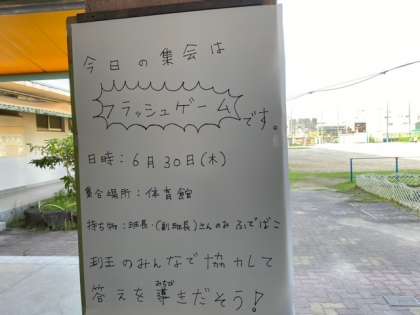 今日の集会は
フラッシュゲーム
です。
日時:6月30日(木)
集合場所:体育館
持ち物:班長・(副班長)さんのみ ふでばこ
班のみんなで協力して
答えを導きだそう!
みちび